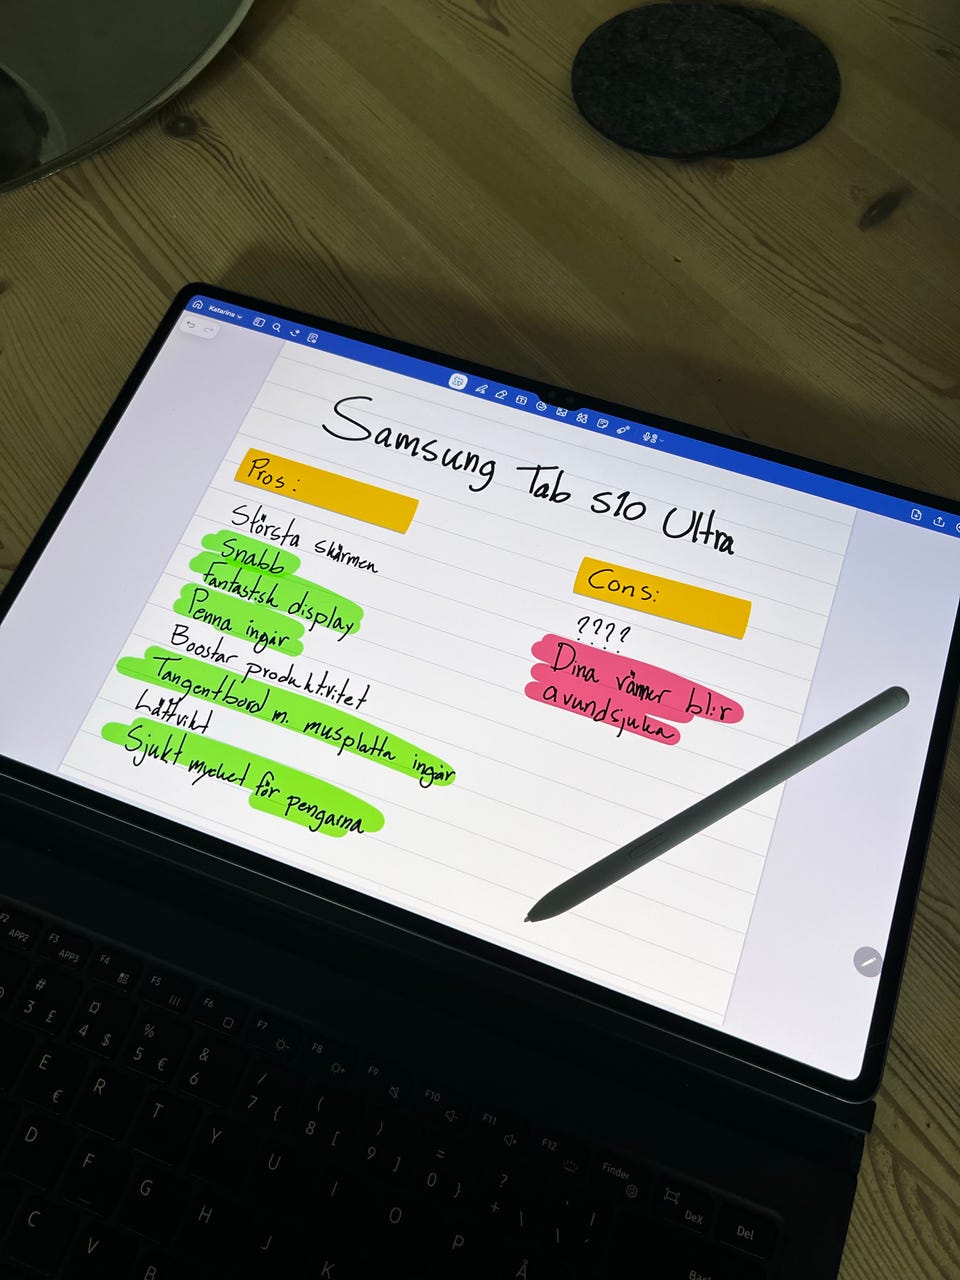 Katarina
Samsung Tab S10 Ultra
Pros:
Största skärmen
Snabb
Fantastisk display
Penna ingår
Boostar produktivitet
Tangentbord m. musplatta ingår
Lättvikt
Sjukt mycket för pengarna
Cons:
????
Dina vänner blir
avundsjuka
F2 APP2 F3 APP3 F4 F5 F6 F7 F8 F9 F10 F11 F12 Finder DeX Del
# 3 £ ¤ 4 $ % 5 € & 6 / 7 { ( 8 [ ) 9 ] = 0 } ? + \
E € R T Y U I O P Å
D F G H J K
C V B